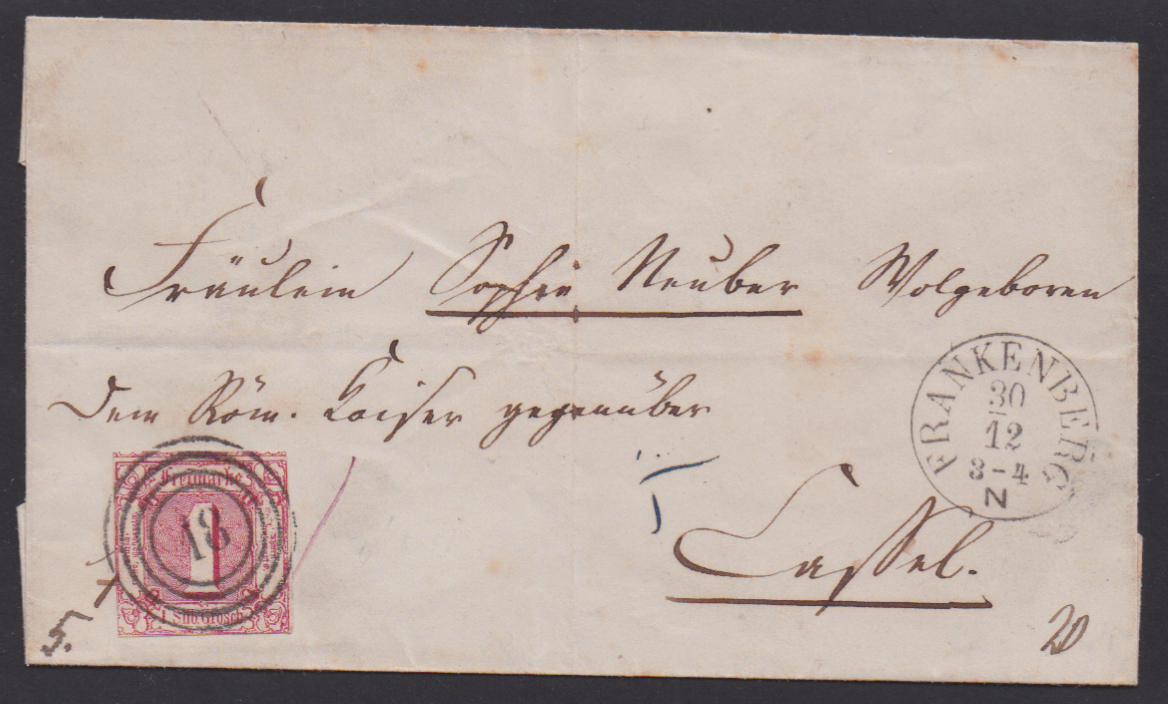 Fräulein Sophie Neuber Wolgeboren
dem Röm. Kaiser gegenüber
Cassel.
FRANKENBERG
30
12
3-4
N
Freimarke
18
1
1 Silb. Grosch.
5.
20